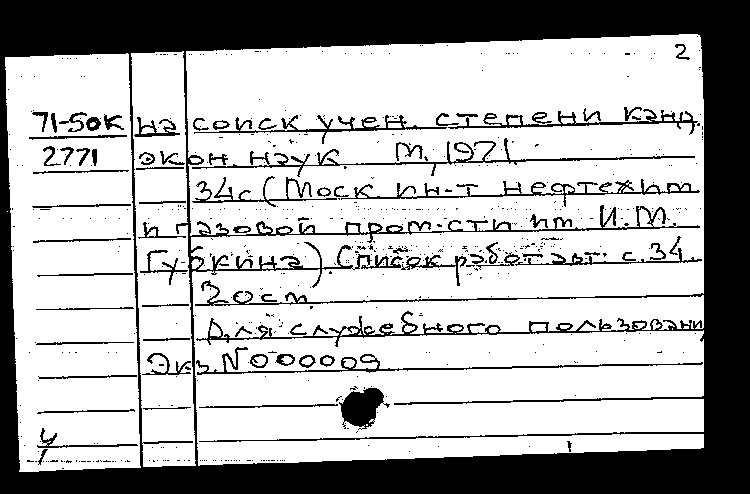 2
71-50К на соиск учен. степени канд.
2771 экон. наук. М., 1971.
34с (Моск ин-т нефтехим
и газовой пром-сти им И.М.
Губкина). Список работ авт: с. 34.
20см.
Для служебного пользовани
Экз. N000009